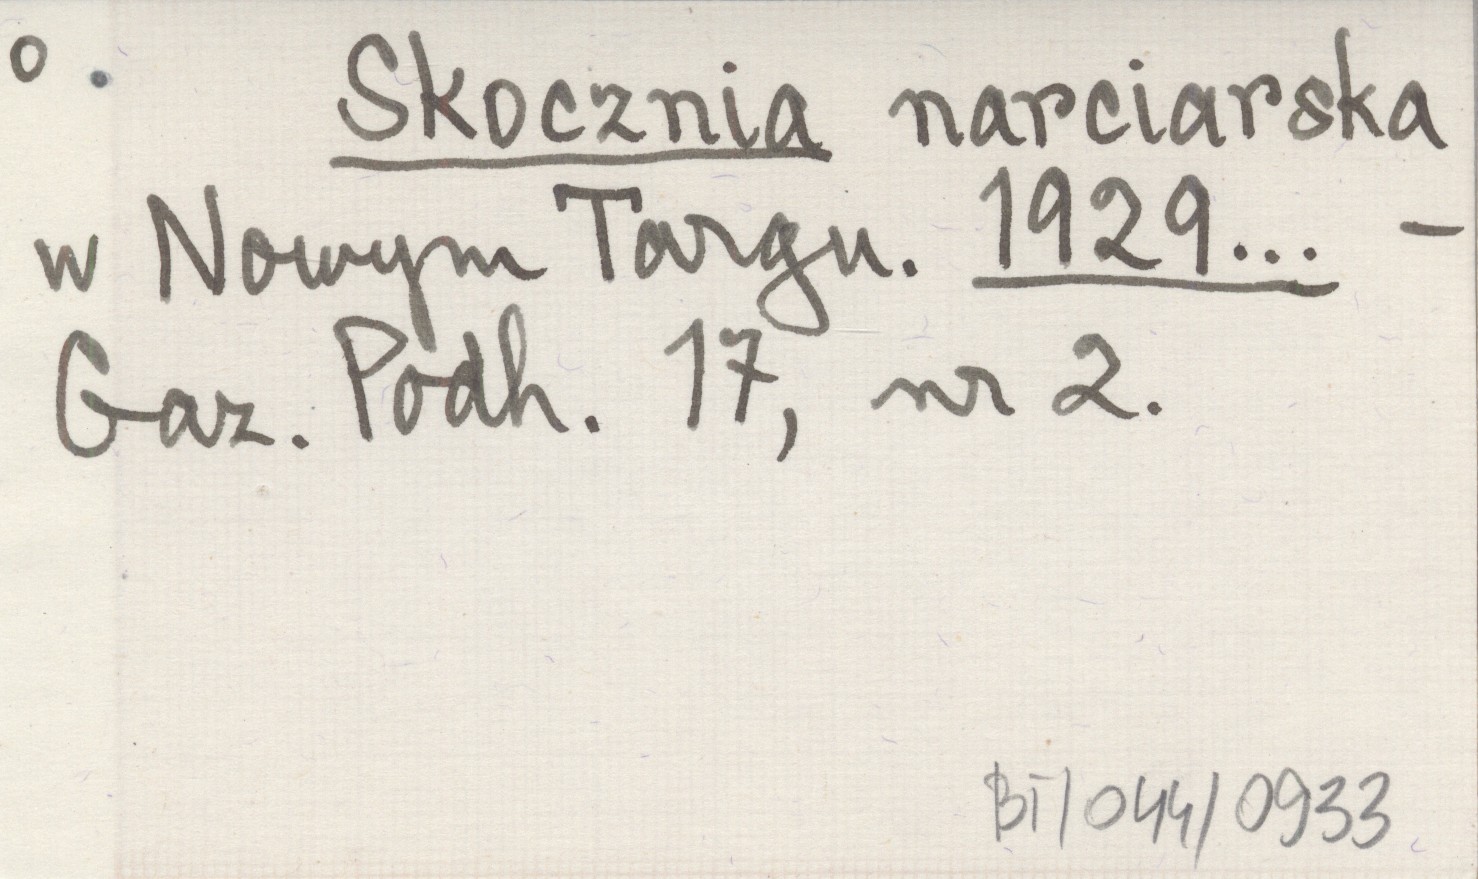 o
Skocznia narciarska
w Nowym Targu. 1929... -
Gaz. Podh. 17, nr 2.
BT/044/0933